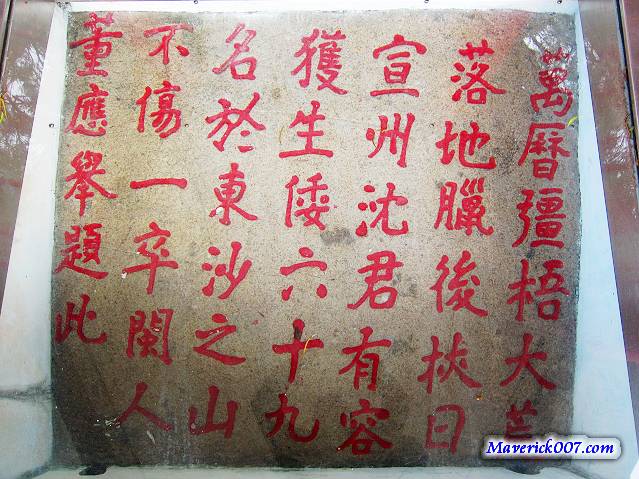 萬曆彊梧大芒
落地臘後挾日
宣州沈君有容
獲生倭六十九
名於東沙之山
不傷一卒閩人
董應舉題此
Maverick007.com